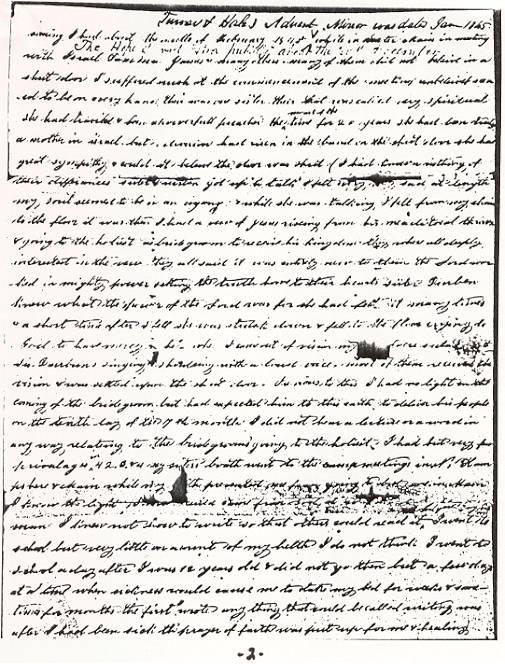 Turner & Hale's Advent Mirror was dated Jan 1845
coming I had about the middle of February 1845 while in Exeter Maine in meeting
with Israel Dammon James & many others many of them did not believe in a
shut door I suffered much at the commencement of the meeting unbelief seem
ed to be on every hand there was one sister there that was called very spiritual
she had traveled & been a powerful preacher the most of the time for 20 years she had been truly
a mother in israel but a division had risen in the band on the shut door she had
great sympathy & could not believe the door was shut (I had known nothing of
their differences) sister got up to talk I felt very very sad at length
my soul seemed to be in an agony & while she was talking I fell from my chair
to the floor it was then I had a view of Jesus rising from his mediatorial throne
& going to the holiest as bridegroom to receive his kingdom they were all deeply
interested in the view they all said it was entirely new to them the Lord wor
ked in mighty power setting the truth home to their hearts sister Durben
knew what the power of the Lord was for she had felt it many times
& a short time after I fell she was struck down & fell to the floor crying to
God to have mercy on her I was out of vision my
sis Durben singing & shouting with a loud voice most of them received the
vision & was settled upon the shut door previous to this I had no light on the
coming of the bridegroom but had expected him to this earth to deliver his people
on the tenth day of the 7th month I did not hear a lecture or a word in
any way relating to the bridegroom going to the holiest I had but very few
privaleges
I knew the light
man I knew not how to write so that others could read it I went to
school but very little on account of my health I do not think I went to
school a day after I was 12 years old & did not go then but a few days
at a time when sickness would cause me to take my bed for weeks & some
times for months the first I wrote any thing that could be called writing was
after I had been sick the prayer of faith was put up for me & healing
-2-